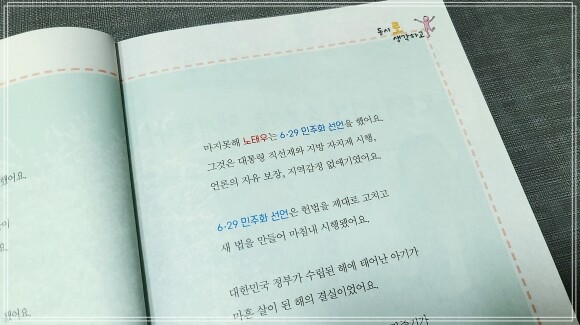 동시로
생각하고
했어요.
마지못해 노태우는 6·29 민주화 선언을 했어요.
그것은 대통령 직선제와 지방 자치제 시행,
언론의 자유 보장, 지역감정 없애기였어요.
6·29 민주화 선언은 헌법을 제대로 고치고
새 법을 만들어 마침내 시행됐어요.
대한민국 정부가 수립된 해에 태어난 아기가
마흔 살이 된 해의 결실이었어요.